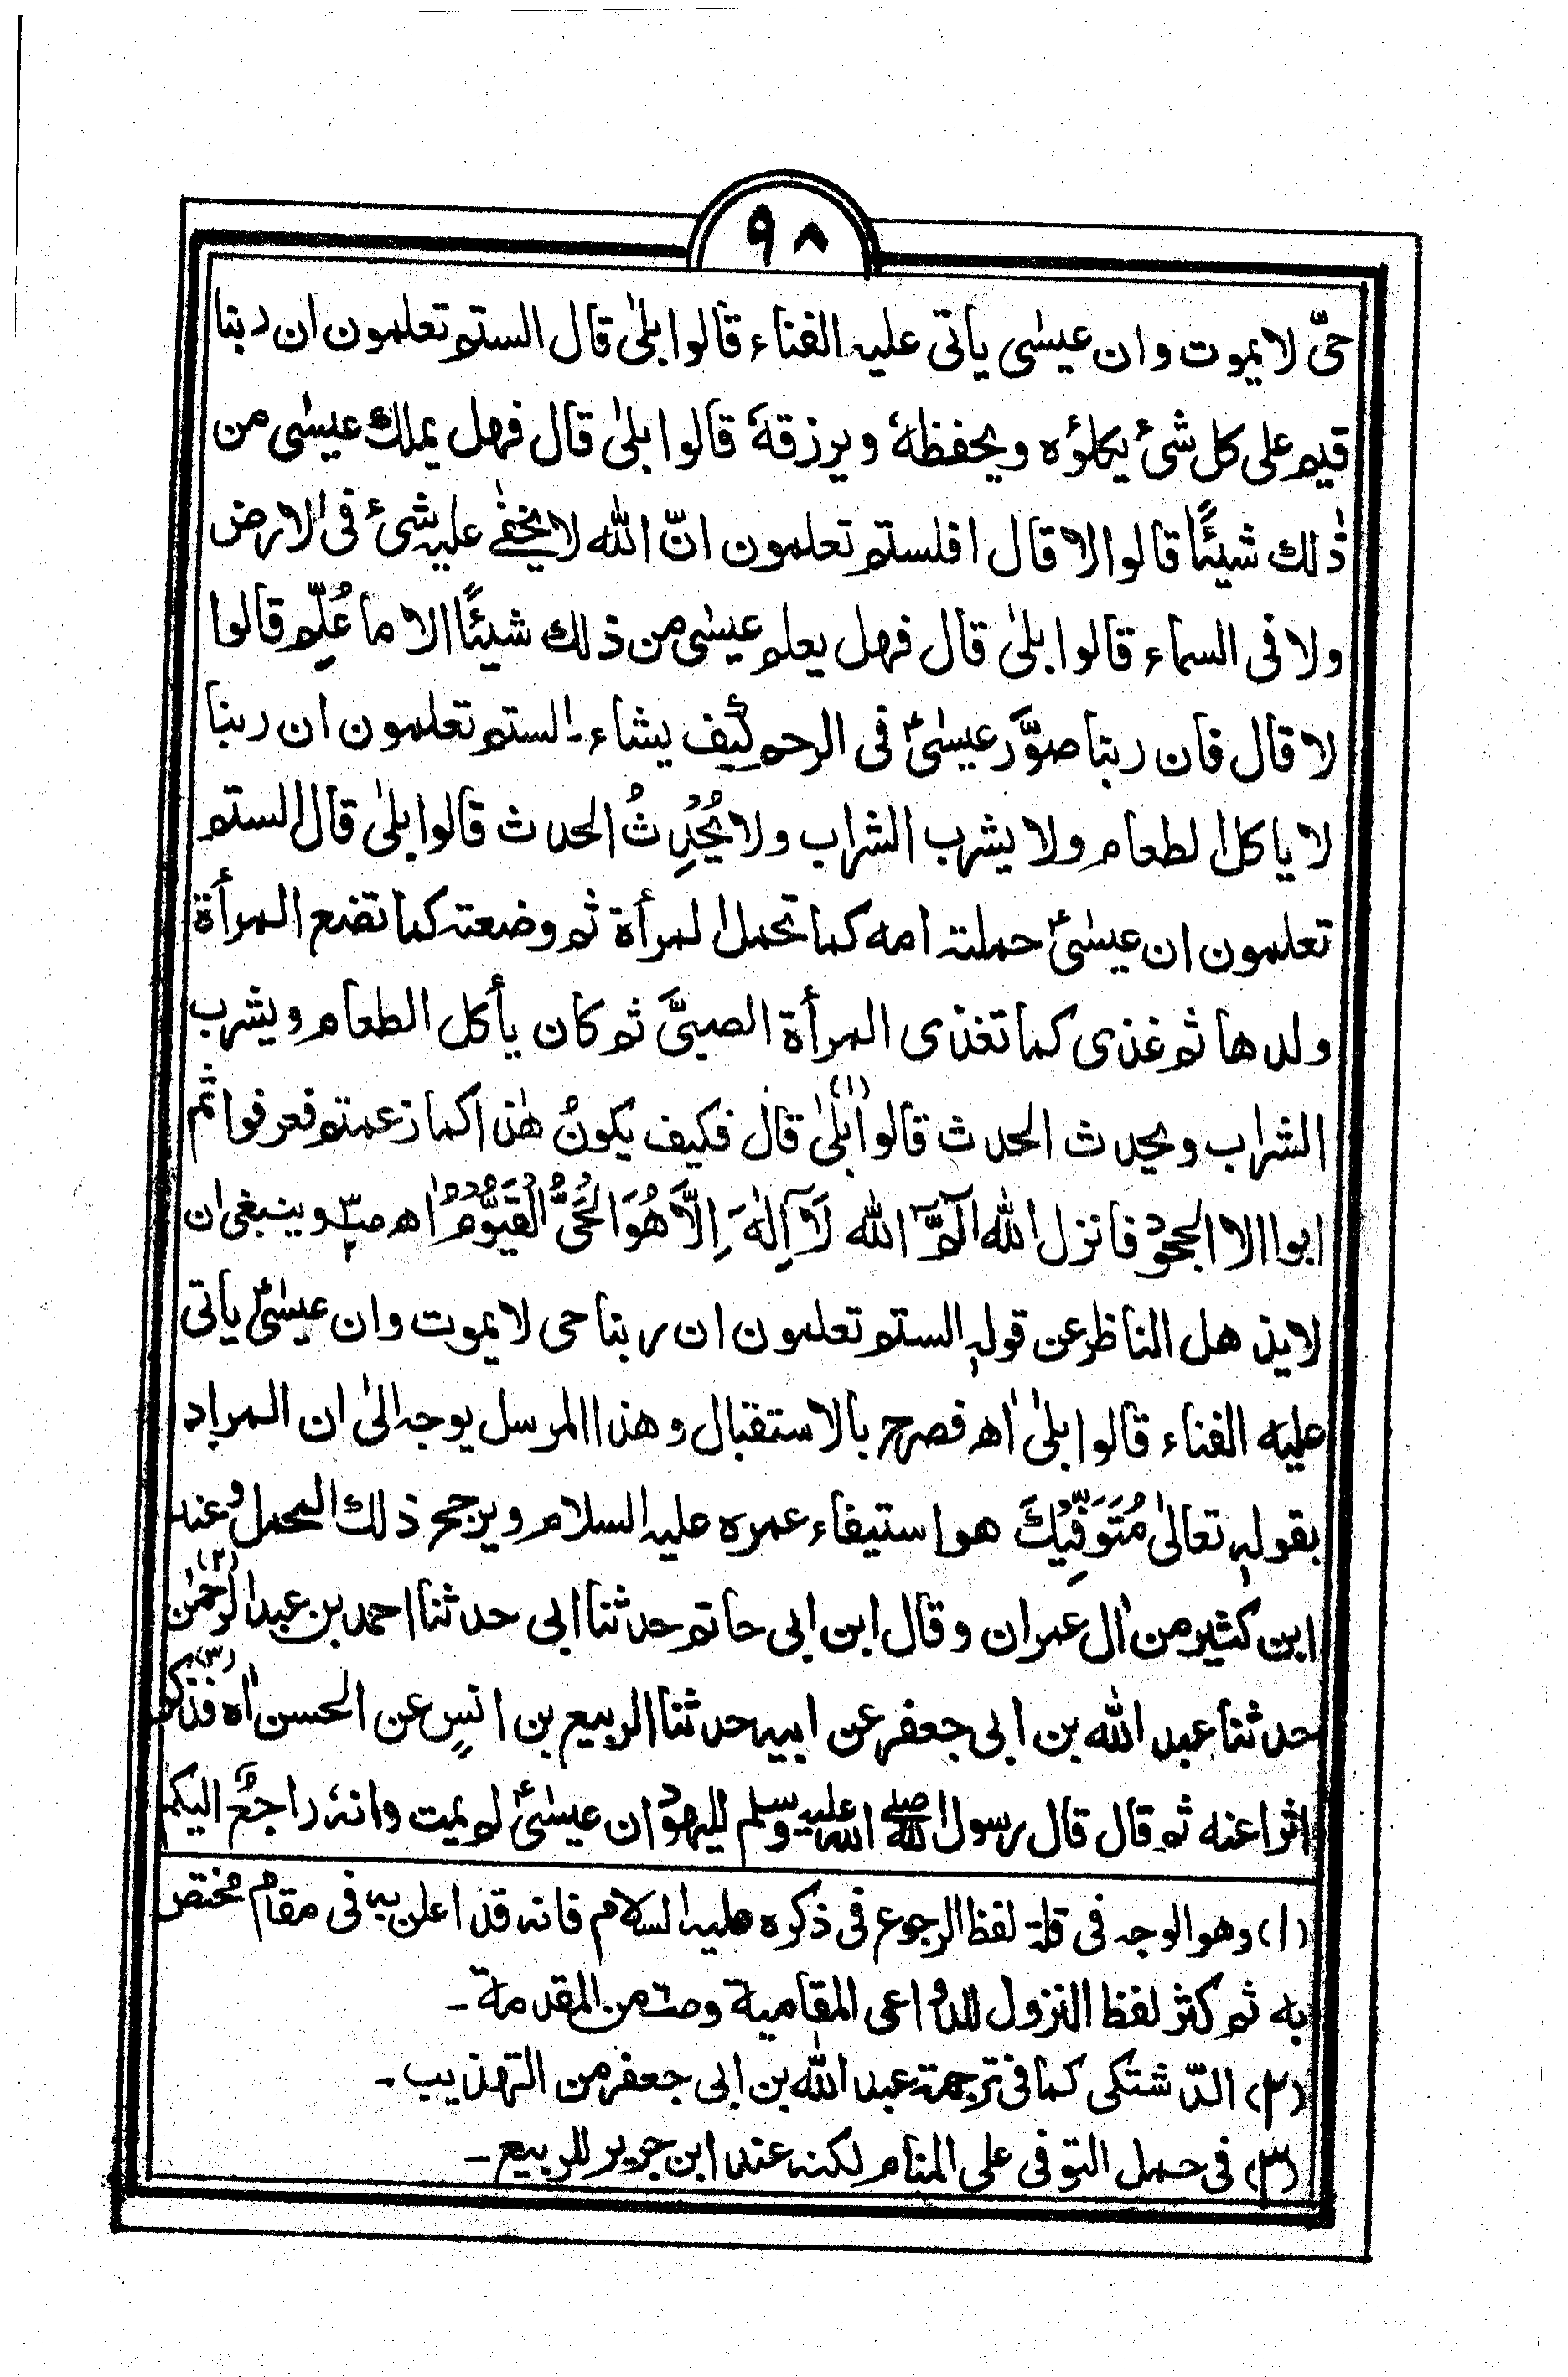 ۹۸
حیّ لا یموت وان عیسٰی یاتی علیہ الفناء قالوا بلیٰ قال الستم تعلمون ان ربنا
قیم علی کل شیٔ یکلؤہ ویحفظہٗ ویرزقہٗ قالوا بلیٰ قال فھل یملك عیسٰی من
ذٰلك شیئًا قالوا لا قال افلستم تعلمون انّ اللّٰہ لا یخفٰے علیہ شیٔ فی الارض
ولا فی السماء قالوا بلیٰ قال فھل یعلم عیسٰی من ذلك شیئًا الا ما عُلِّم قالوا
لا قال فان ربنا صوَّر عیسٰیؑ فی الرحم کیف یشاء۔ الستم تعلمون ان ربنا
لا یاکل الطعام ولا یشرب الشراب ولا یُحْدِثُ الحدث قالوا بلیٰ قال الستم
تعلمون ان عیسٰیؑ حملتہ امہ کما تحمل المرأة ثم وضعتہ کما تضع المرأة
ولدھا ثم غذی کما تغذی المرأة الصبیَّ ثم کان یأکل الطعام ویشرب
الشراب ویحدث الحدث قالوا بلیٰ (۱) قال فکیف یکونُ ھٰذا کما زعمتم فعرفوا ثم
ابوا الا الجحود فانزل اللّٰہ الٓمّٓ اللّٰہ لَآ اِلٰہَ اِلَّا ھُوَ الْحَیُّ الْقَیُّوْمُ اٰھ وینبغی ان
لا یذھل الناظر عن قولہٖ الستم تعلمون ان ربنا حی لا یموت وان عیسٰیؑ یاتی
علیہ الفناء قالوا بلیٰ اٰھ فصرح بالاستقبال وھذا المرسل یوجہ الیٰ ان المراد
بقولہٖ تعالیٰ مُتَوَفِّیْكَ ھو استیفاء عمرہ علیہ السلام ویرجح ذلك المحمل وعند
ابن کثیر من اٰل عمران وقال ابن ابی حاتم حدثنا ابی حدثنا احمد بن عبد الرحمٰن (۲)
حدثنا عبد اللّٰہ بن ابی جعفر عن ابیہ حدثنا الربیع بن انسٍ عن الحسن اٰہ فذکر (۳)
اثرا عنہ ثم قال قال رسول اللّٰہ صلی اللّٰہ علیہ وسلم للیھود ان عیسٰیؑ لم یمت وانہٗ راجعٌ الیکم
(۱) وھو الوجہ فی قلۃ لفظ الرجوع فی ذکرہ علیہ السلام فانہ قد اعلن بہ فی مقام مختص
بہ ثم کثر لفظ النزول للدواعی المقامیۃ ومت من المقدمۃ۔
(۲) الدّشتکی کما فی ترجمۃ عبد اللّٰہ بن ابی جعفر من التھذیب۔
(۳) فی حمل التوفی علی المنام لکنہ عند ابن جریر للربیع۔